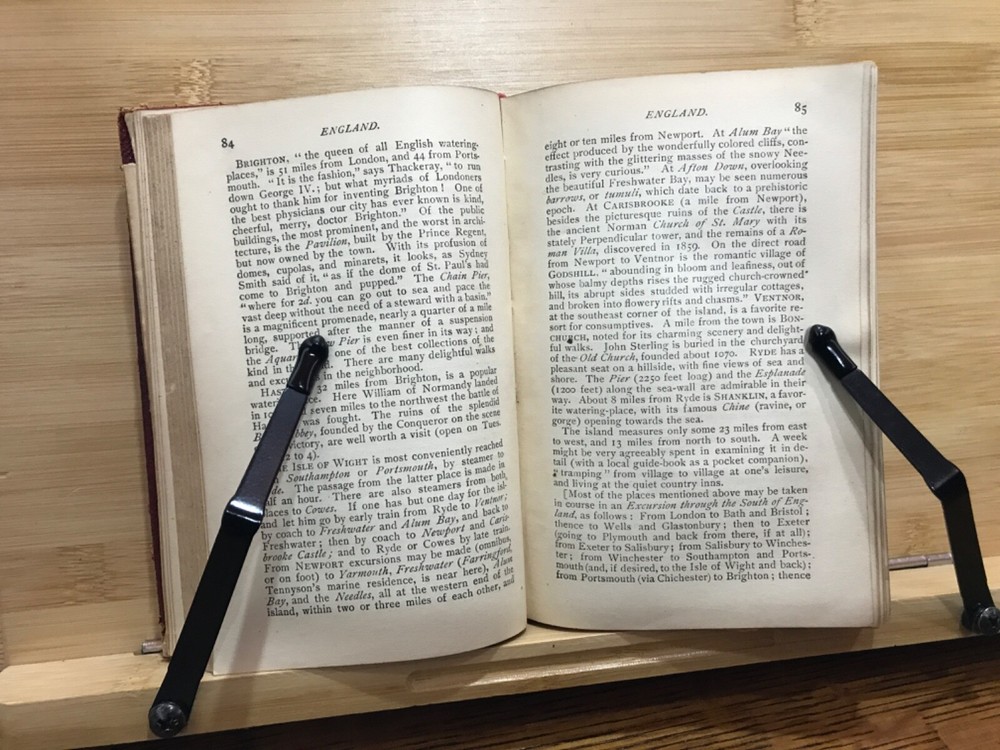 84
ENGLAND.
BRIGHTON, "the queen of all English watering-
places," is 51 miles from London, and 44 from Ports-
mouth. "It is the fashion," says Thackeray, "to run
down George IV.; but what myriads of Londoners
ought to thank him for inventing Brighton! One of
the best physicians our city has ever known is kind,
cheerful, merry, doctor Brighton." Of the public
buildings, the most prominent, and the worst in archi-
tecture, is the Pavilion, built by the Prince Regent,
but now owned by the town. With its profusion of
domes, cupolas, and minarets, it looks, as Sydney
Smith said of it, "as if the dome of St. Paul's had
come to Brighton and pupped." The Chain Pier,
"where for 2d. you can go out to sea and pace the
vast deep without the need of a steward with a basin,"
is a magnificent promenade, nearly a quarter of a mile
long, supported after the manner of a suspension
bridge. The Pier is even finer in its way; and
the one of the best collections of the
kind in There are many delightful walks
and in the neighborhood.
32 miles from Brighton, is a popular
Here William of Normandy landed
in seven miles to the northwest the battle of
was fought. The ruins of the splendid
founded by the Conqueror on the scene
are well worth a visit (open on Tues.
2 to 4).
ISLE OF WIGHT is most conveniently reached
Southampton or Portsmouth, by steamer to
The passage from the latter place is made in
an hour. There are also steamers from both
to Cowes. If one has but one day for the isl-
and let him go by early train from Ryde to Ventnor;
by coach to Freshwater and Alum Bay, and back to
Freshwater; then by coach to Newport and Caris-
brooke Castle; and to Ryde or Cowes by late train.
From NEWPORT excursions may be made (omnibus,
or on foot) to Yarmouth, Freshwater (Farringford,
Tennyson's marine residence, is near here), Alum
Bay, and the Needles, all at the western end of the
island, within two or three miles of each other, and
ENGLAND.
85
eight or ten miles from Newport. At Alum Bay "the
effect produced by the wonderfully colored cliffs, con-
trasting with the glittering masses of the snowy Nee-
dles, is very curious." At Afton Down, overlooking
the beautiful Freshwater Bay, may be seen numerous
barrows, or tumuli, which date back to a prehistoric
epoch. At CARISBROOKE (a mile from Newport),
besides the picturesque ruins of the Castle, there is
the ancient Norman Church of St. Mary with its
stately Perpendicular tower, and the remains of a Ro-
man Villa, discovered in 1859. On the direct road
from Newport to Ventnor is the romantic village of
GODSHILL, "abounding in bloom and leafiness, out of
whose balmy depths rises the rugged church-crowned
hill, its abrupt sides studded with irregular cottages,
and broken into flowery rifts and chasms." VENTNOR,
at the southeast corner of the island, is a favorite re-
sort for consumptives. A mile from the town is BON-
CHURCH, noted for its charming scenery and delight-
ful walks. John Sterling is buried in the churchyard
of the Old Church, founded about 1070. RYDE has a
pleasant seat on a hillside, with fine views of sea and
shore. The Pier (2250 feet long) and the Esplanade
(1200 feet) along the sea-wall are admirable in their
way. About 8 miles from Ryde is SHANKLIN, a favor-
ite watering-place, with its famous Chine (ravine, or
gorge) opening towards the sea.
The island measures only some 23 miles from east
to west, and 13 miles from north to south. A week
might be very agreeably spent in examining it in de-
tail (with a local guide-book as a pocket companion),
"tramping" from village to village at one's leisure,
and living at the quiet country inns.
[Most of the places mentioned above may be taken
in course in an Excursion through the South of Eng-
land, as follows: From London to Bath and Bristol;
thence to Wells and Glastonbury; then to Exeter
(going to Plymouth and back from there, if at all);
from Exeter to Salisbury; from Salisbury to Winches-
ter; from Winchester to Southampton and Ports-
mouth (and, if desired, to the Isle of Wight and back);
from Portsmouth (via Chichester) to Brighton; thence